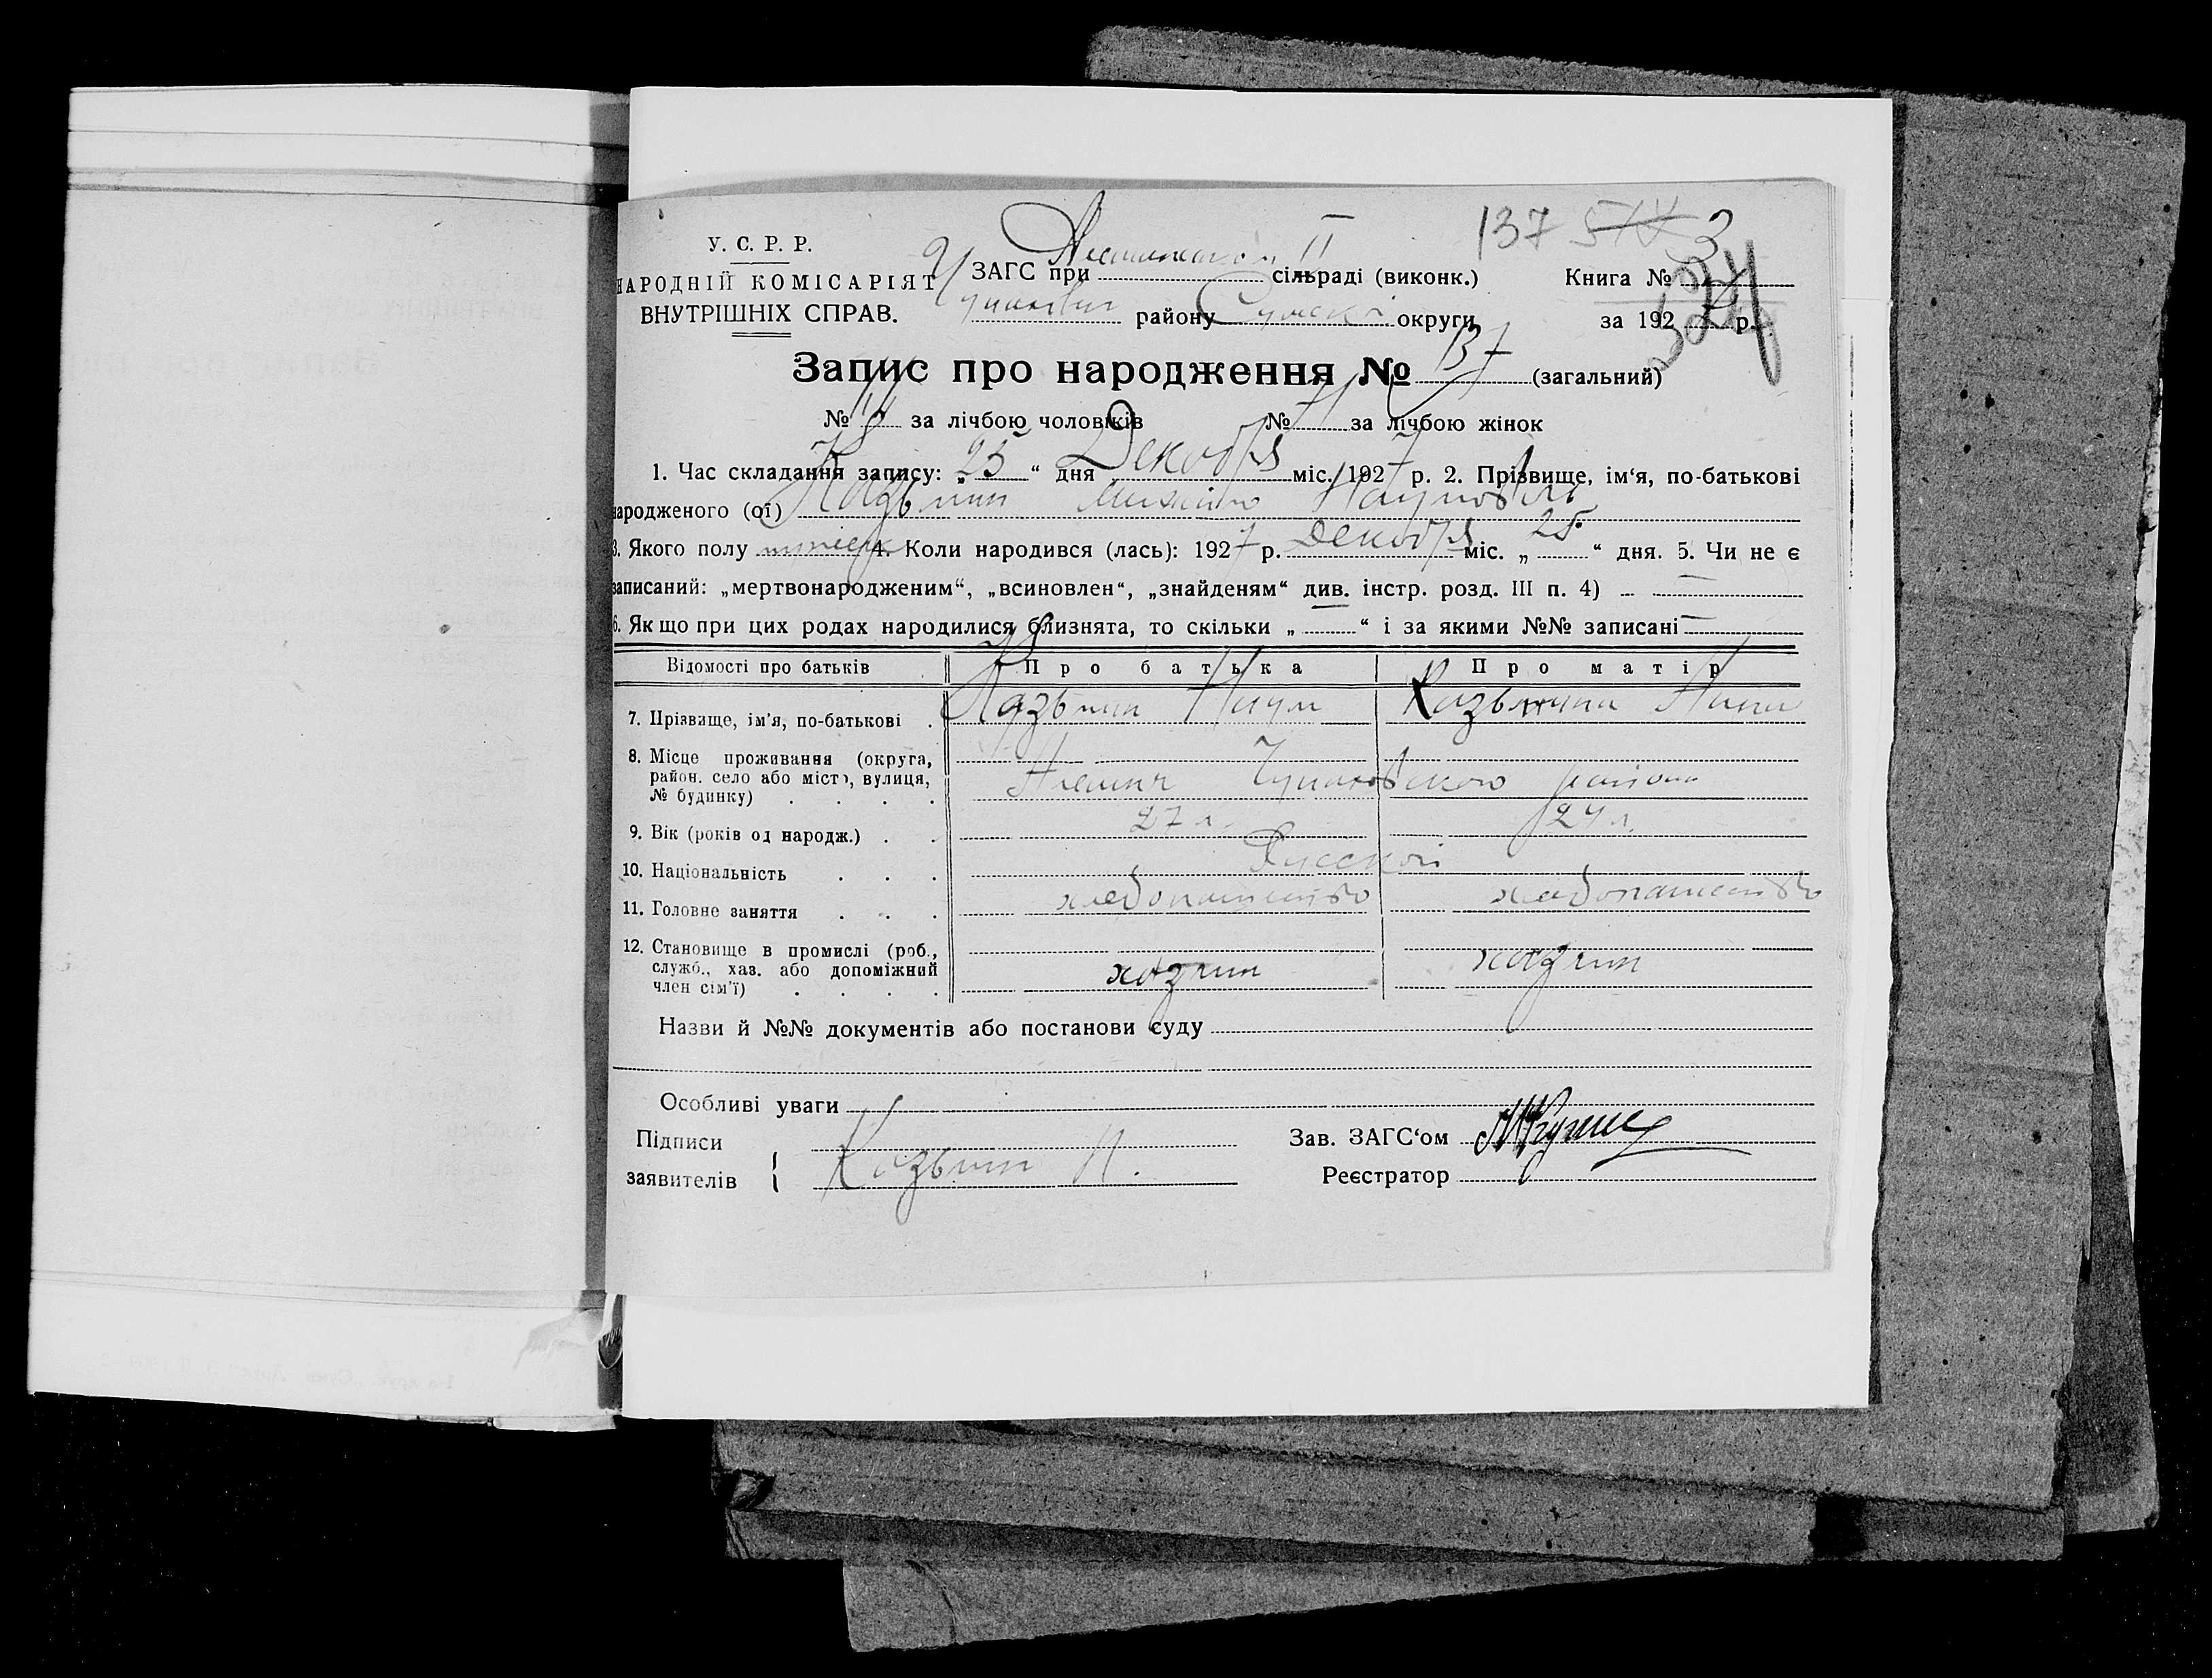 137 3
У. С. Р. Р.
НАРОДНІЙ КОМІСАРІЯТ
ВНУТРІШНІХ СПРАВ.
ЗАГС при II сільраді (виконк.)
району Сумскої округи
Книга № 3
за 1927 р.
Запис про народження № 137 (загальний)
№ за лічбою чоловіків № 71 за лічбою жінок
1. Час складання запису: „25“ дня Декабря міс. 1927 р. 2. Прізвище, ім‘я, по-батькові
народженого (ої) Казьмин Михаил Наумович
3. Якого полу мужск 4. Коли народився (лась): 1927 р. Декабря міс. „25“ дня. 5. Чи не є
записаний: „мертвонародженим“, „всиновлен“, „знайденям“ див. інстр. розд. III п. 4) —
6. Якщо при цих родах народилися близнята, то скільки „ “ і за якими №№ записані —
Відомості про батьків Про батька Про матір
7. Прізвище, ім'я, по-батькові . Казьмин Наум Казьмина Анна
8. Місце проживання (округа,
район, село або місто, вулиця,
№ будинку) . . . . Чупаховского района
9. Вік (років од народж.) . . 27 л. 24 л.
10. Національність . . . Русской
11. Головне заняття . . . хлебопашество хлебопашество
12. Становище в промислі (роб.,
служб., хаз. або допоміжний
член сім'ї) . . . . хазяин хазяин
Назви й №№ документів або постанови суду
Особливі уваги
Підписи
заявителів Казьмин Н.
Зав. ЗАГС‘ом
Реєстратор